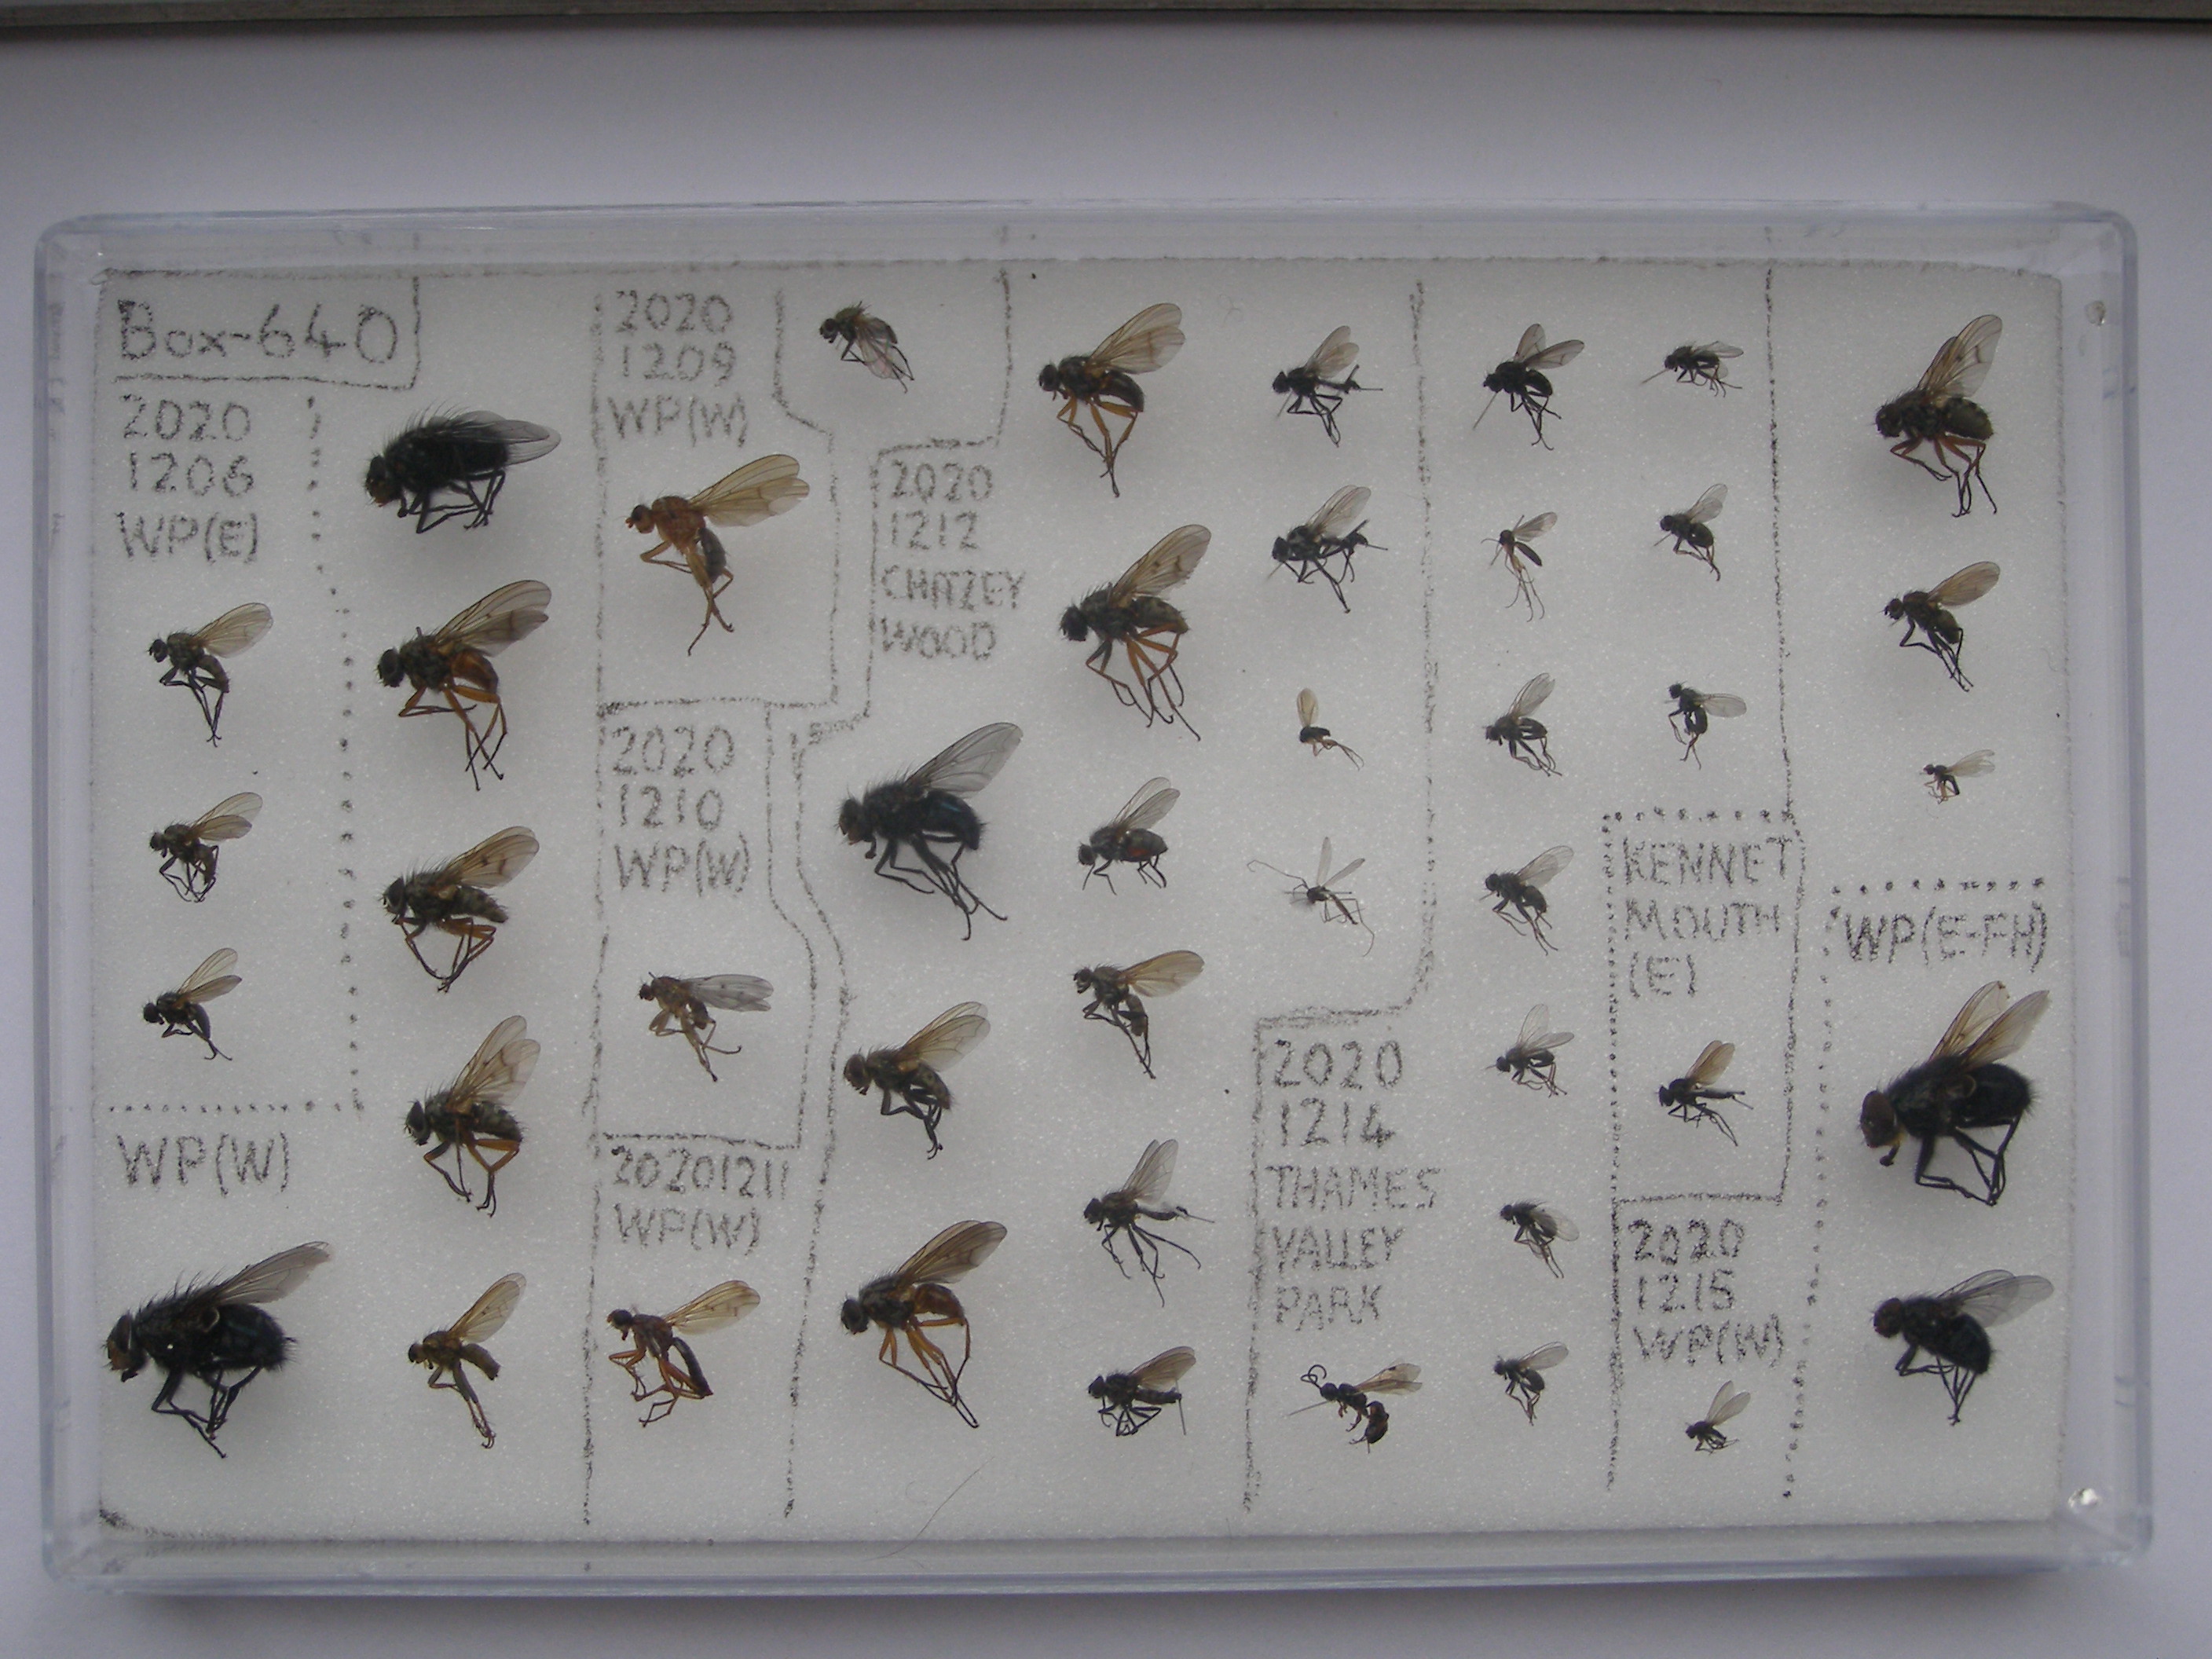 Box-640
2020
1206
WP(E)
WP(W)
2020
1209
WP(W)
2020
1210
WP(W)
20201211
WP(W)
2020
1212
WOOD
2020
1214
THAMES
VALLEY
PARK
KENNET
MOUTH
(E)
2020
1215
WP(W)
WP(E-FH)